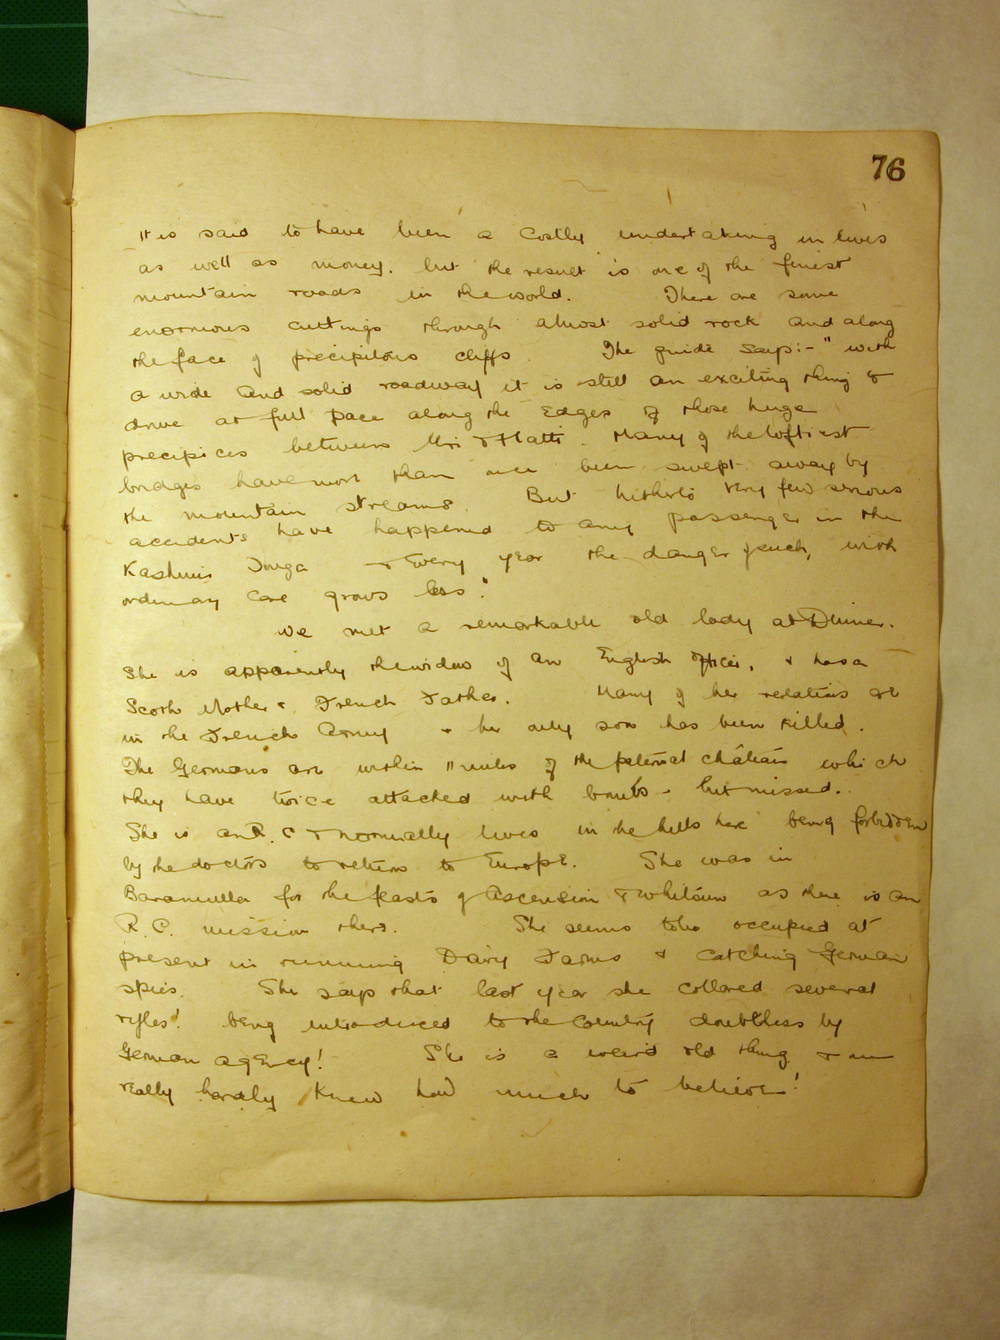 76
It is said to have been a costly undertaking in lives
as well as money, but the result is one of the finest
mountain roads in the world. There are some
enormous cuttings through almost solid rock and along
the face of precipitous cliffs. The guide says:- "with
a wide and solid roadway it is still an exciting thing to
drive at full pace along the edges of those huge
precipices between Uri & Hatti. Many of the loftiest
bridges have more than once been swept away by
the mountain streams. But hitherto very few serious
accidents have happened to any passenger in the
Kashmir Tonga & every year the danger, with
ordinary care grows less."
We met a remarkable old lady at Dinner.
She is apparently the widow of an English officer, & has a
Scotch Mother & French Father. Many of her relations are
in the French Army & her only son has been killed.
The Germans are within 11 miles of the paternal château which
they have twice attacked with bombs & but missed.
She is an R.C & normally lives in the hills here being forbidden
by the doctors to return to Europe. She was in
Baramulla for the feasts of Ascension & Whitsun as there is an
R.C. mission there. She seems to be occupied at
present in running Dairy Farms & catching German
spies. She says that last year she collared several
rifles! being introduced to the country doubtless by
German agency! She is a weird old thing & we
really hardly knew how much to believe!